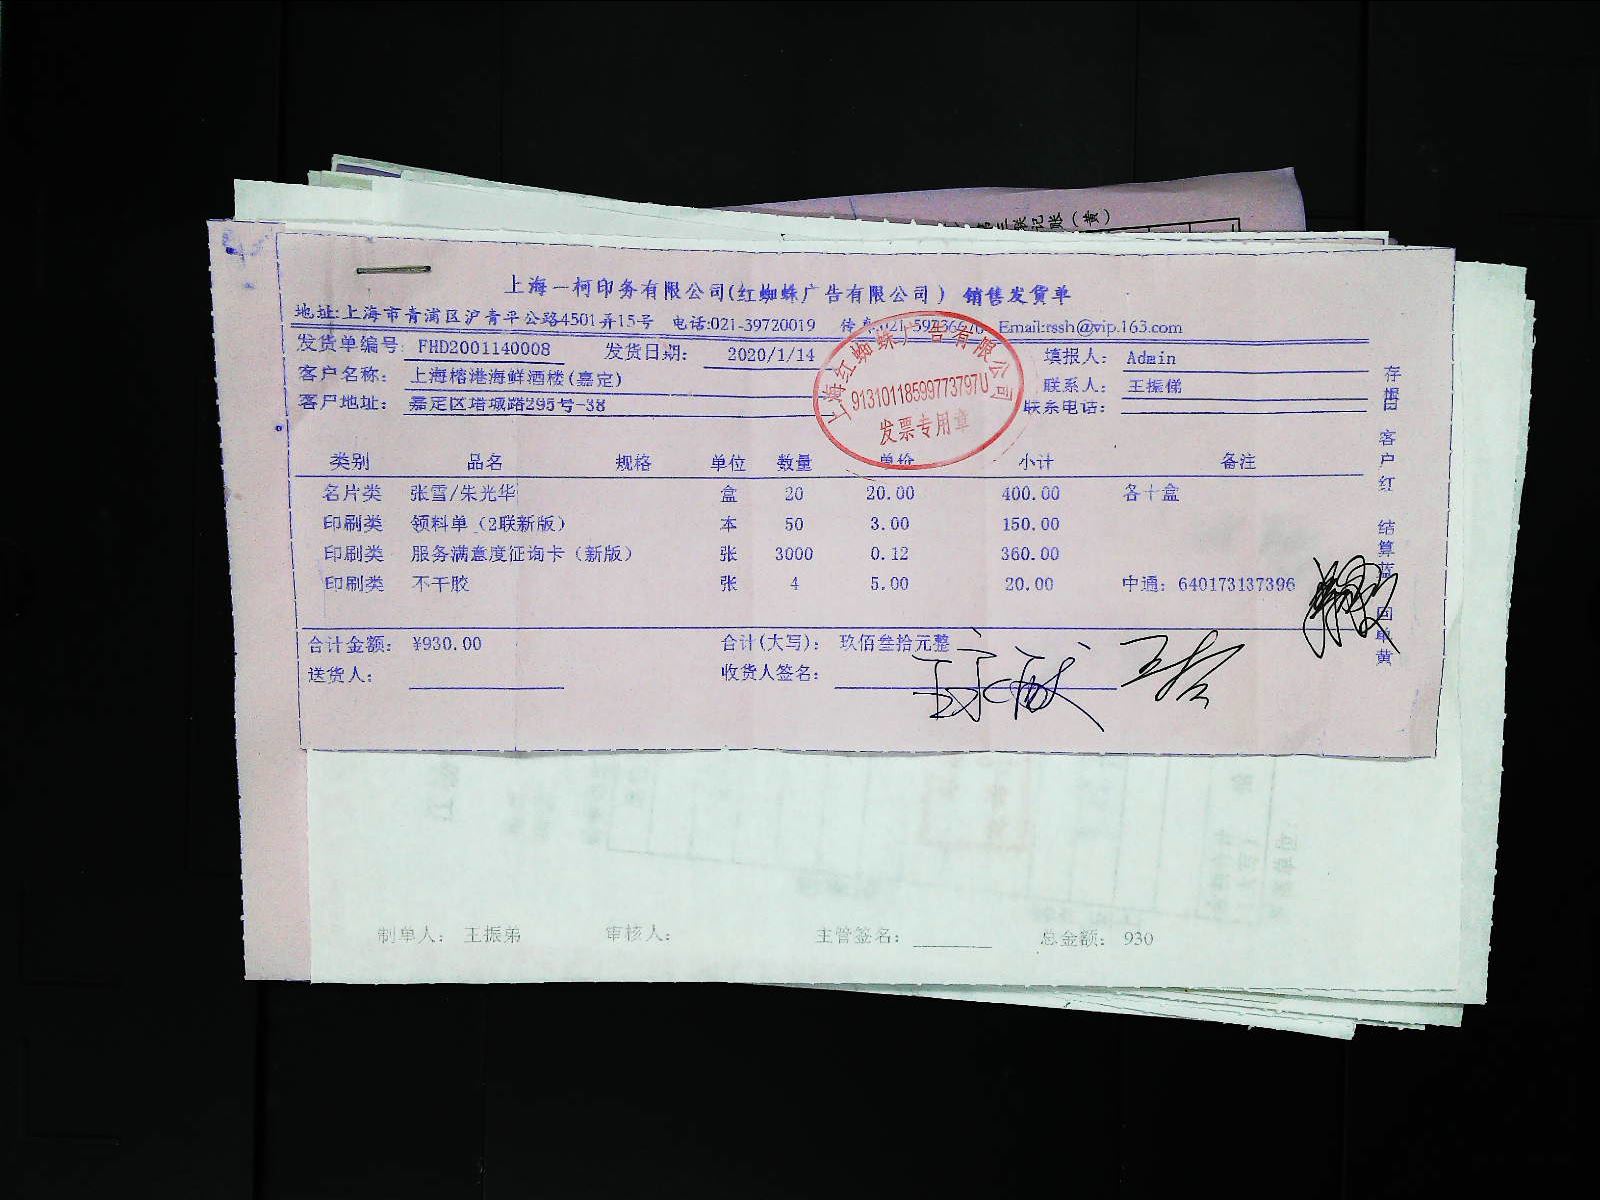 账记账(黄)
上海一柯印务有限公司(红蜘蛛广告有限公司) 销售发货单
地址:上海市青浦区沪青平公路4501弄15号 电话:021-39720019 传真:021-59736676 Email:rssh@vip.163.com
发货单编号: FHD2001140008 发货日期: 2020/1/14 填报人: Admin
客户名称: 上海榕港海鲜酒楼(嘉定) 联系人: 王振俤
客户地址: 嘉定区塔城路295号-38 联系电话:
上海红蜘蛛广告有限公司
91310118599773797U
发票专用章
存根白 客户红 结算蓝 回单黄
类别 品名 规格 单位 数量 单价 小计 备注
名片类 张雪/朱光华 盒 20 20.00 400.00 各十盒
印刷类 领料单(2联新版) 本 50 3.00 150.00
印刷类 服务满意度征询卡(新版) 张 3000 0.12 360.00
印刷类 不干胶 张 4 5.00 20.00 中通: 640173137396
合计金额: ¥930.00 合计(大写): 玖佰叁拾元整
送货人: 收货人签名:
制单人: 王振弟 审核人: 主管签名: 总金额: 930